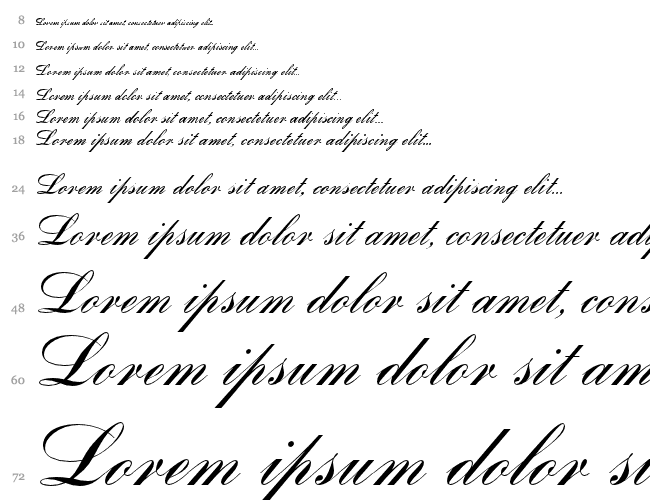 8 Lorem ipsum dolor sit amet, consectetuer adipiscing elit...
10 Lorem ipsum dolor sit amet, consectetuer adipiscing elit...
12 Lorem ipsum dolor sit amet, consectetuer adipiscing elit...
14 Lorem ipsum dolor sit amet, consectetuer adipiscing elit...
16 Lorem ipsum dolor sit amet, consectetuer adipiscing elit...
18 Lorem ipsum dolor sit amet, consectetuer adipiscing elit...
24 Lorem ipsum dolor sit amet, consectetuer adipiscing elit...
36 Lorem ipsum dolor sit amet, consectetuer adi
48 Lorem ipsum dolor sit amet, cons
60 Lorem ipsum dolor sit am
72 Lorem ipsum dolor si